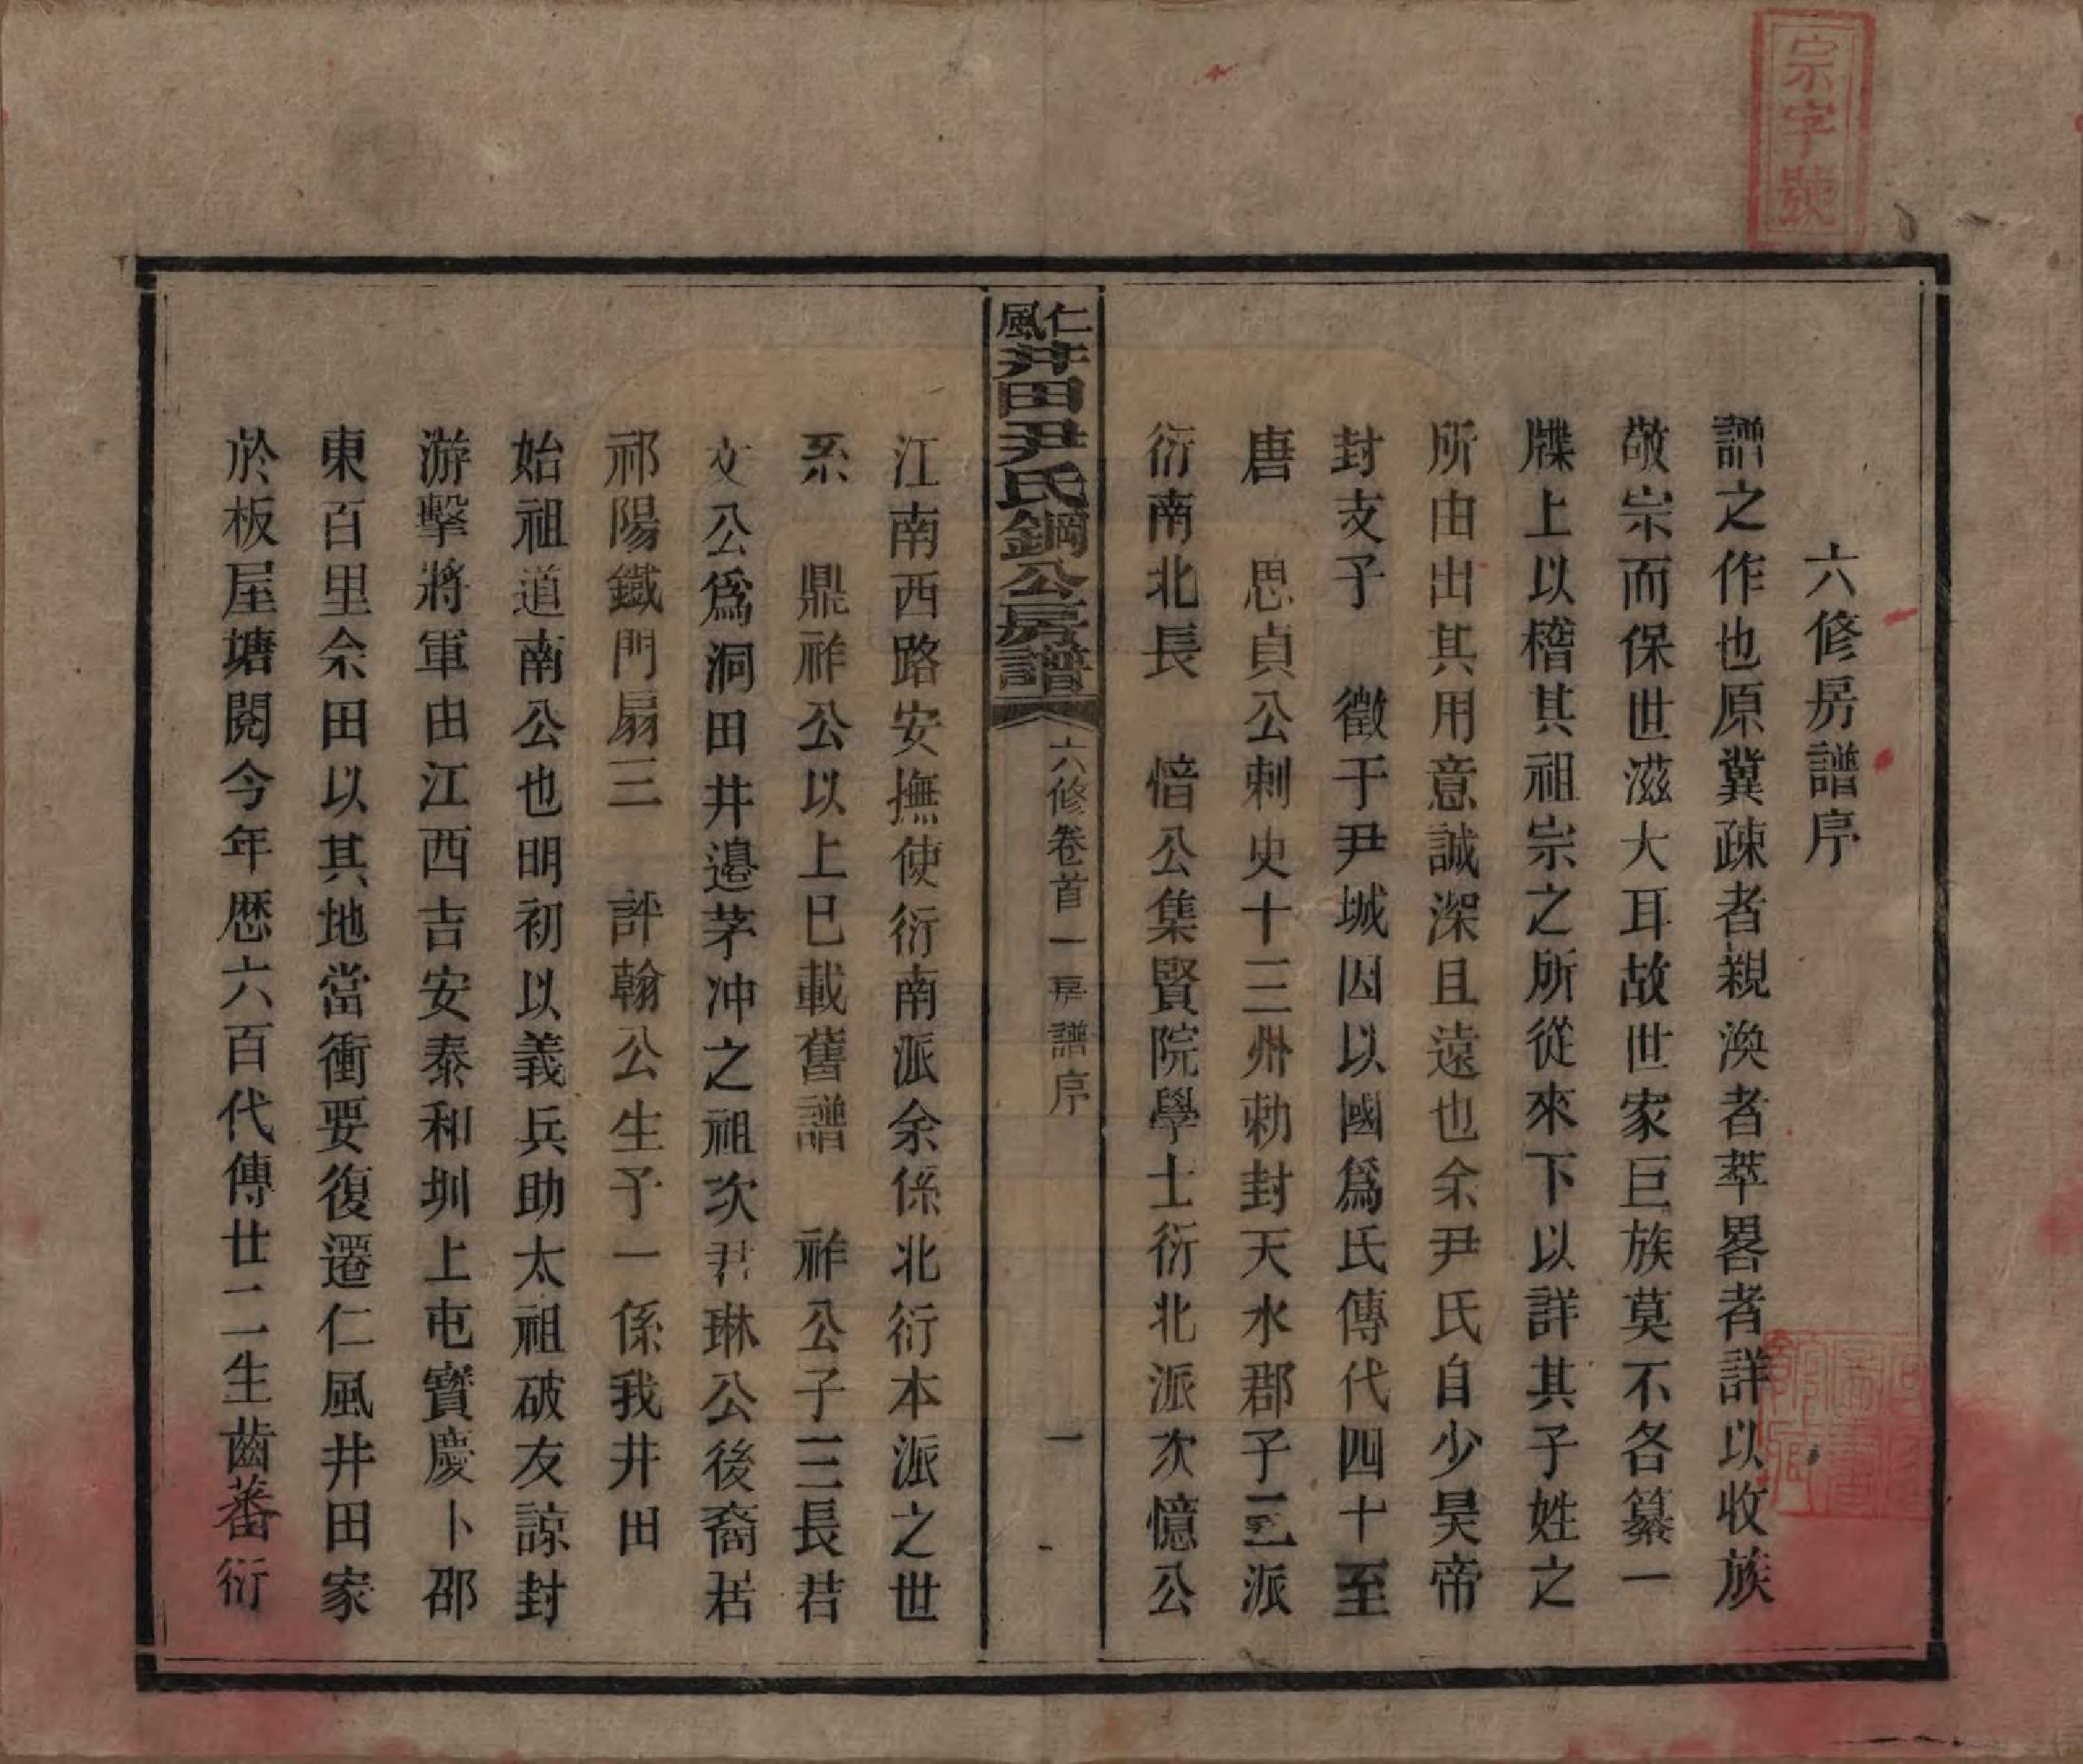 宗字號
六修房譜序
譜之作也原冀疎者親渙者萃畧者詳以收族
敬宗而保世滋大耳故世家巨族莫不各纂一
牒上以稽其祖宗之所從來下以詳其子姓之
所由出其用意誠深且遠也余尹氏自少昊帝
封支子 徵于尹城因以國爲氏傳代四十至
唐 思貞公刺史十三州勅封天水郡子三派
衍南北長 愔公集賢院學士衍北派次憶公
仁風井田尹氏鋼公房譜
六修卷首一房譜序
一
江南西路安撫使衍南派余係北衍本派之世
系 鼎祚公以上巳載舊譜 祚公子三長君
文公爲洞田井邉茅冲之祖次君琳公後裔居
祁陽鐵門扇三 評翰公生予一係我井田
始祖道南公也明初以義兵助太祖破友諒封
游擊將軍由江西吉安泰和圳上屯寳慶卜邵
東百里佘田以其地當衝要復遷仁風井田家
於板屋塘閱今年歷六百代傳廿二生齒蕃衍